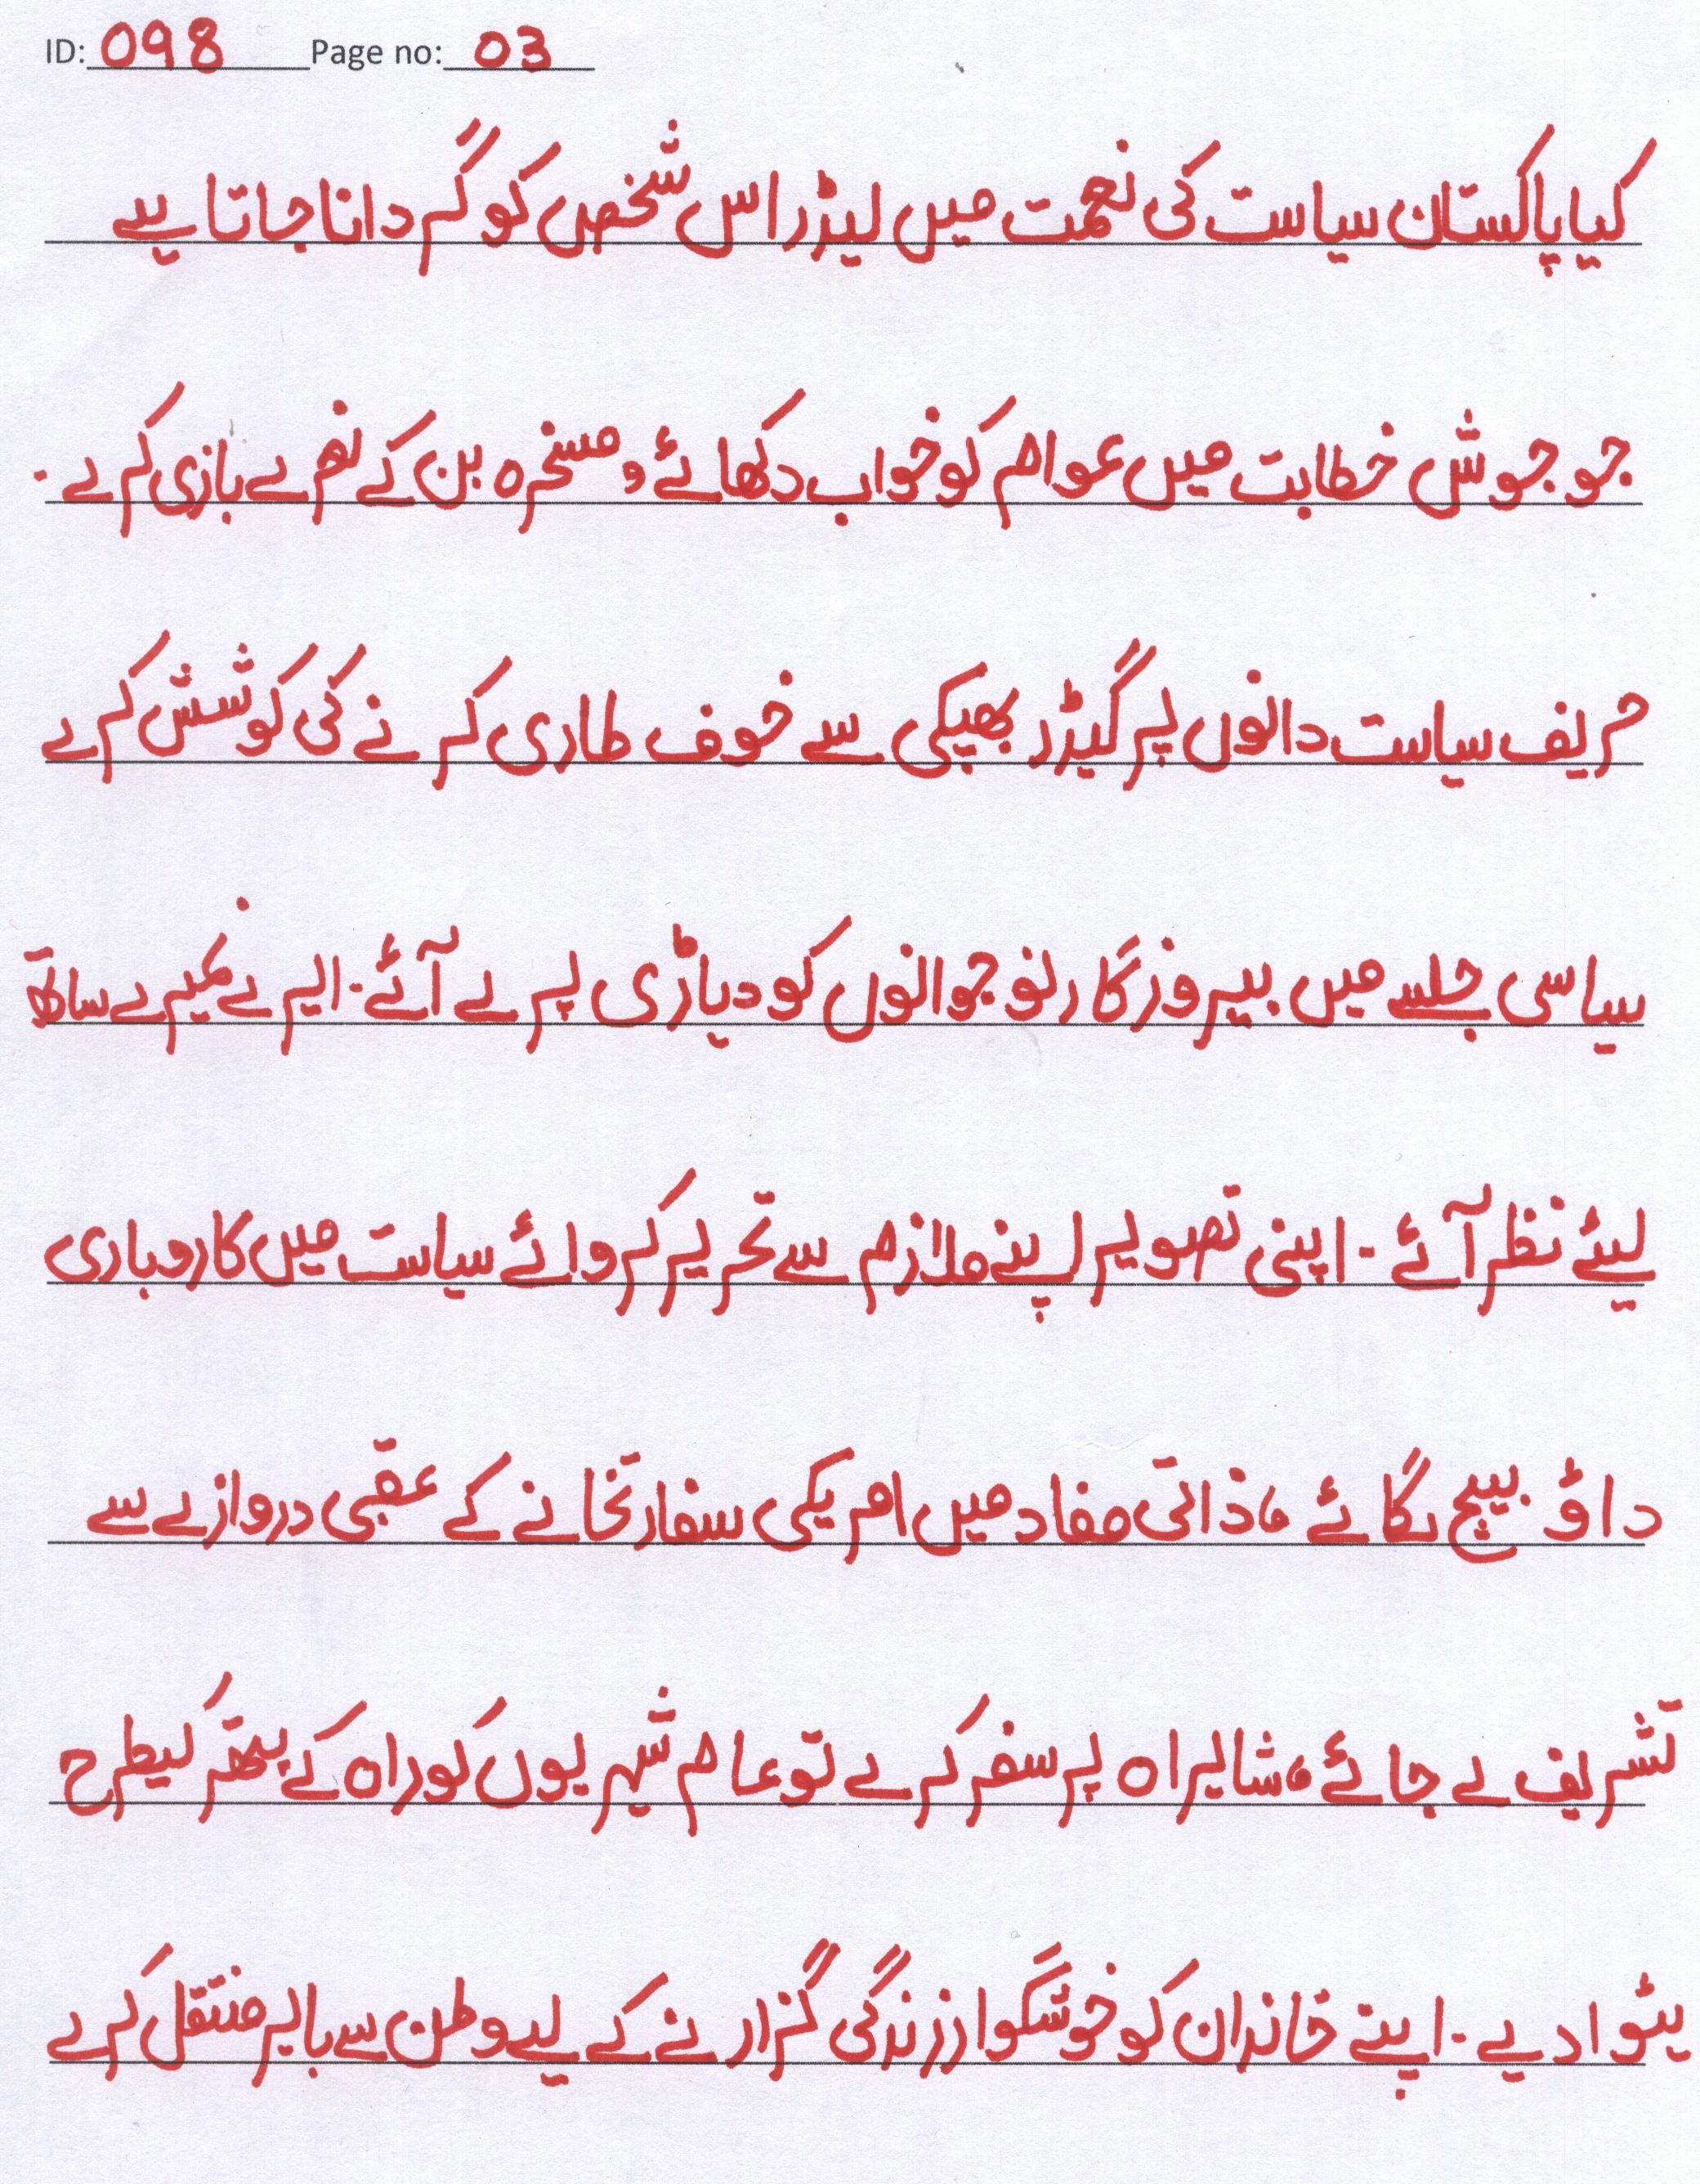 ID: 098 Page no: 03
کیا پاکستان سیاست کی نعمت میں لیڈر اس شخص کو گردانا جاتا ہے
جو جوش خطابت میں عوام کو خواب دکھائے، مسخرہ بن کے نعرے بازی کرے۔
حریف سیاست دانوں پر گیڈر بھبکی سے خوف طاری کرنے کی کوشش کرے
سیاسی جلسے میں بیروزگار نوجوانوں کو دہاڑی پر لے آئے۔ ساتھ
لیئے نظر آئے۔ اپنی تصویر اپنے ملازم سے تحریر کروائے سیاست میں کاروباری
داؤ پیچ لگائے، ذاتی مفاد میں امریکی سفارتخانے کے عقبی دروازے سے
تشریف لے جائے، شاہراہ پر سفر کرے تو عام شہریوں کو راہ کے پتھر کیطرح
ہٹوا دے۔ اپنے خاندان کو خوشگوار زندگی گزارنے کے لیے وطن سے باہر منتقل کرے